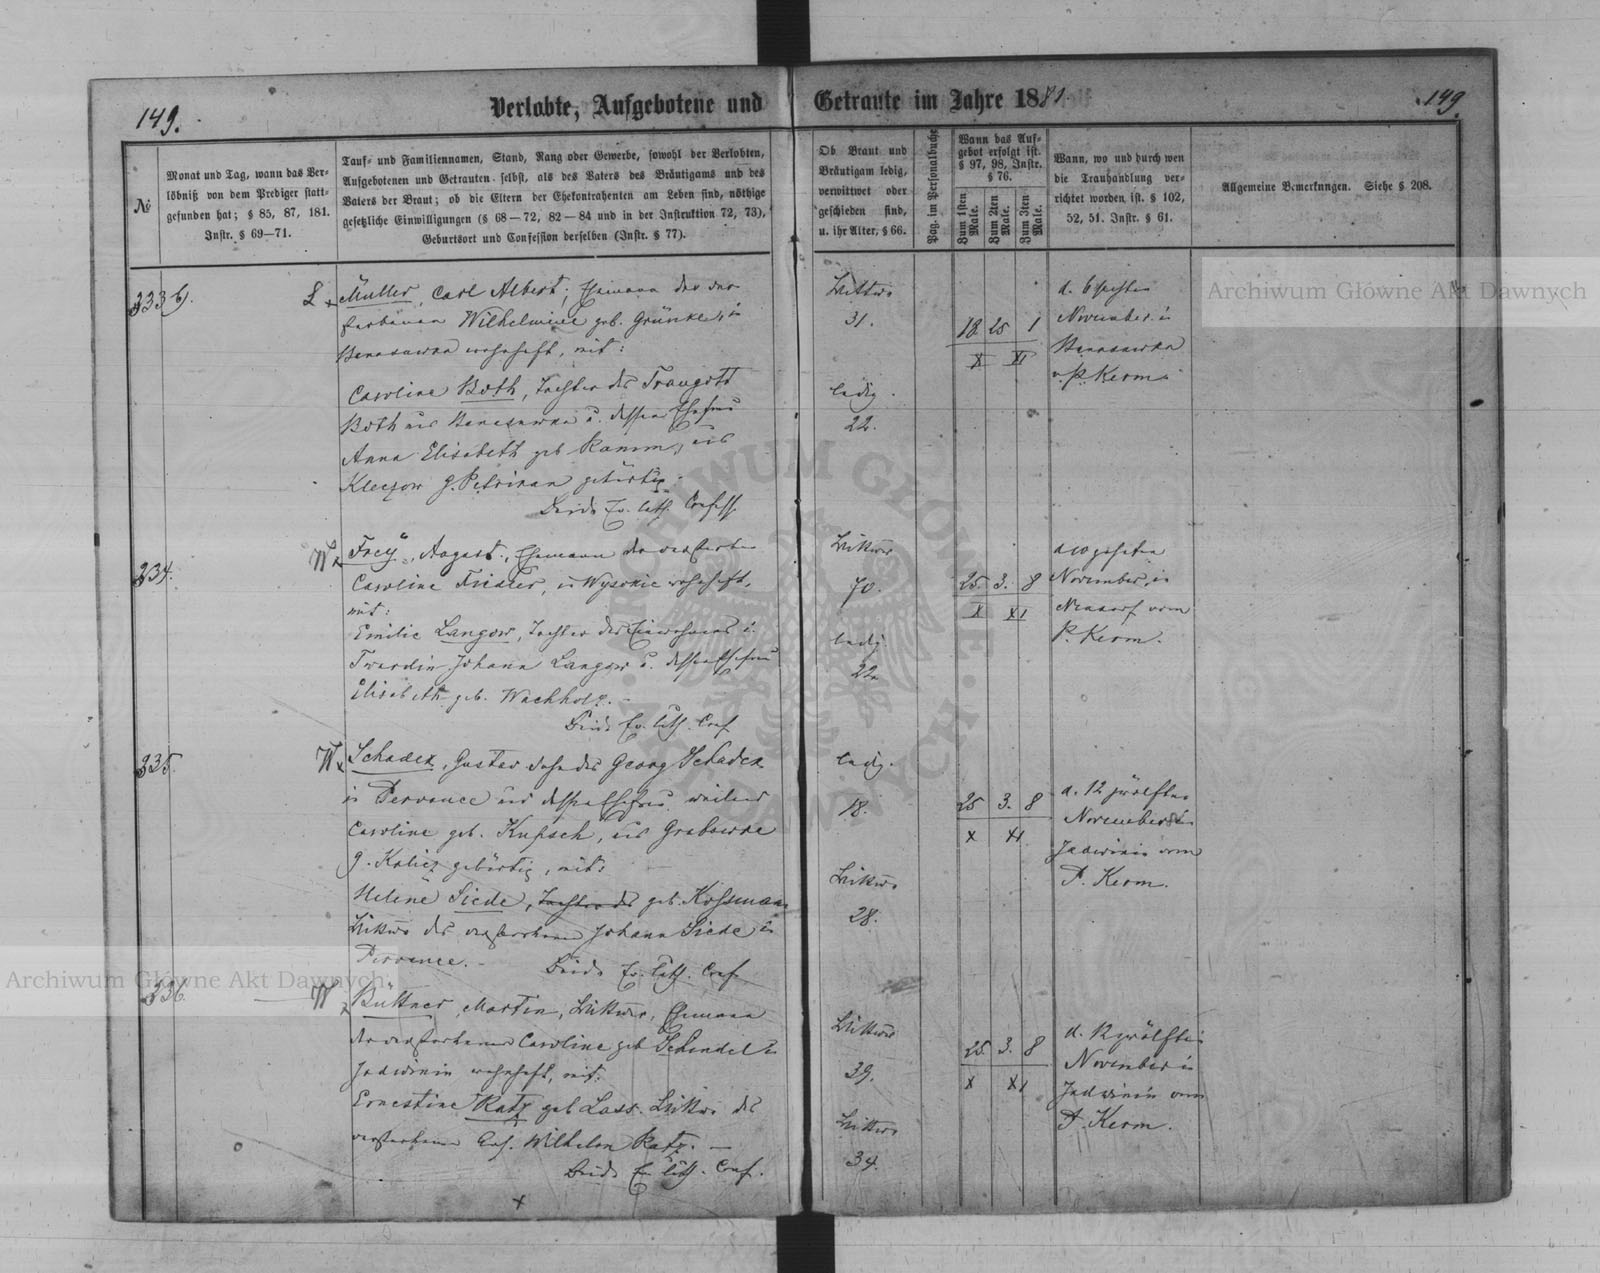 149.
Verlobte, Aufgebotene und Getraute im Jahre 1881.
149.
№
Monat und Tag, wann das Ver-
löbniß von dem Prediger statt-
gefunden hat; § 85, 87, 181.
Instr. § 69—71.
Tauf- und Familiennamen, Stand, Rang oder Gewerbe, sowohl der Verlobten,
Aufgebotenen und Getrauten selbst, als des Vaters des Bräutigams und des
Vaters der Braut; ob die Eltern der Ehekontrahenten am Leben sind, nöthige
gesetzliche Einwilligungen (§ 68—72, 82—84 und in der Instruktion 72, 73),
Geburtsort und Confession derselben (Instr. § 77).
Ob Braut und
Bräutigam ledig,
verwittwet oder
geschieden sind,
u. ihr Alter, § 66.
Pag. im Personalbuche
Wann das Auf-
gebot erfolgt ist.
§ 97, 98, Instr.
§ 76.
Zum 1sten Male.
Zum 2ten Male.
Zum 3ten Male.
Wann, wo und durch wen
die Trauhandlung ver-
richtet worden ist. § 102,
52, 51. Instr. § 61.
Allgemeine Bemerkungen. Siehe § 208.
L Müller, Carl Albert, Ehemann der ver-
storbenen Wilhelmine geb. Grünke, in
wohnhaft, mit:
Caroline Both, Tochter des Traugott
Both aus u. dessen Ehefrau
Anna Elisabeth geb. Ramm, aus
g. Petrikau gebürtig.
Beide Ev. luth. Confess.
Wittwer
31.
ledig.
22.
18 25 1
X XI
d. 6 sechsten
November in
v. P. Kerm.
234.
W Frey, August, Ehemann der verstorbenen
Caroline, in Wysokie wohnhaft,
mit:
Emilie Langow, Tochter des Einwohners in
Twardin Johann Langow u. dessen Ehefrau
Elisabeth geb. Wachholz.
Beide Ev. luth. Conf.
Wittwer
70.
ledig
22.
25. 3. 8
X XI
November, in
Neudorf vom
P. Kerm.
235.
W Schader, Gustav Sohn des Georg Schader
in und dessen Ehefrau weiland
Caroline geb. Kupsch, aus
g. Kalisz gebürtig, mit:
Helene Siede, Tochter des geb. Kossmann
Wittwe des verstorbenen Johann Siede in
Beide Ev. luth. Conf.
ledig.
18.
Wittwe
28.
25 3. 8
X XI
d. 12 zwölften
November in
Jadwinin vom
P. Kerm.
236.
W Büttner, Martin, Wittwer, Ehemann
der verstorbenen Caroline geb. Schindel in
Jadwinin wohnhaft, mit:
Ernestine Ratz geb. Lass. Wittwe des
verstorbenen Wilhelm Ratz.
Beide Ev. luth. Conf.
Wittwer
39.
Wittwe
34.
25 3. 8
X XI
d. 12 zwölften
November in
Jadwinin vom
P. Kerm.
Archiwum Główne Akt Dawnych
Archiwum Główne Akt Dawnych
ARCHIWUM GŁÓWNE AKT DAWNYCH